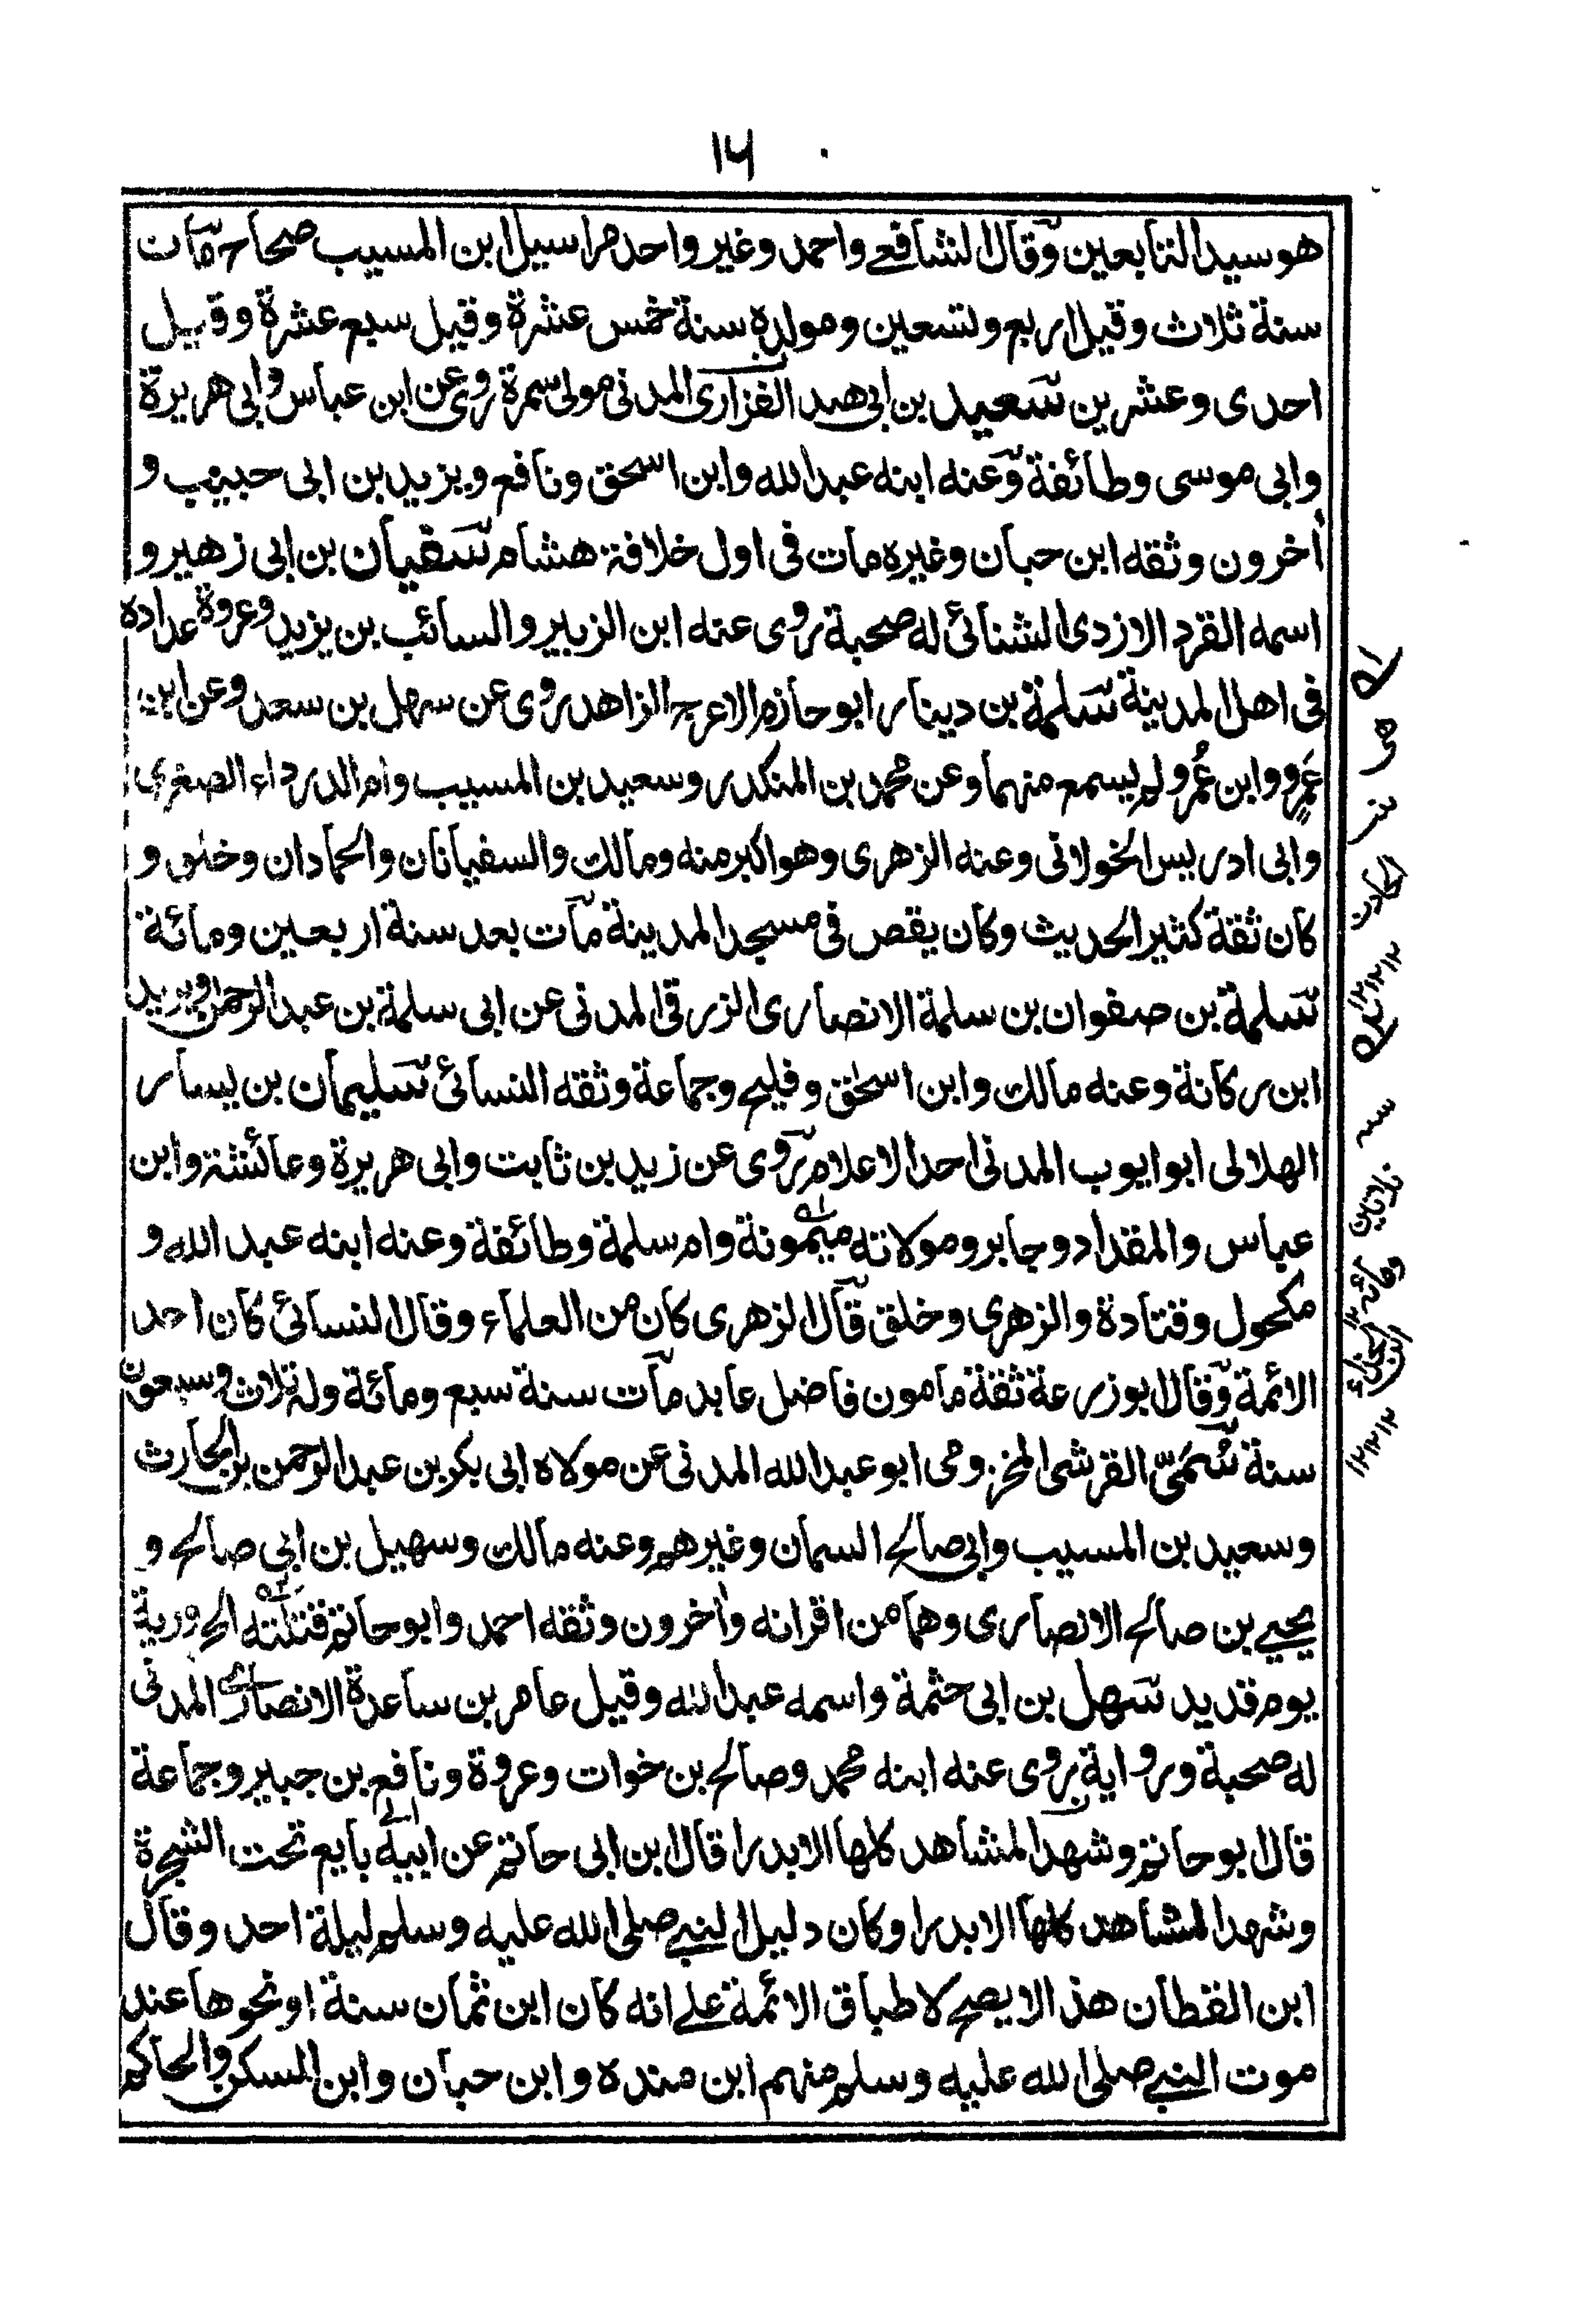 ١٦
هو سيد التابعين وقال الشافعے واحمد وغير واحد مراسيل ابن المسيب صحاح مات
سنة ثلاث وقيل اربع وتسعين ومولده سنة خمس عشرة وقيل سبع عشرة وقيل
احدى وعشرين سعيد بن ابى هند الفزارى المدنى مولى سمرة روى عن ابن عباس وابى هريرة
وابى موسى وطائفة وعنه ابنه عبد الله وابن اسحق ونافع ويزيد بن ابى حبيب و
اٰخرون وثقه ابن حبان وغيره مات فى اول خلافة هشام سفيان بن ابى زهير و
اسمه القرد الازدى الشنائى له صحبة روى عنه ابن الزبير والسائب بن يزيد وعروة عداده
فى اهل المدينة سلمة بن دينار ابو حازم الاعرج الزاهد روى عن سهل بن سعد وعن ابن
عَمرو وابن عُمر ولم يسمع منهما وعن محمد بن المنكدر وسعيد بن المسيب وام الدرداء الصغرى
وابى ادريس الخولانى وعنه الزهرى وهو اكبر منه ومالك والسفيانان والحمادان وخلق و
كان ثقة كثير الحديث وكان يقص فى مسجد المدينة مات بعد سنة اربعين ومائة
سلمة بن صفوان بن سلمة الانصارى الزرقى المدنى عن ابى سلمة بن عبد الرحمن ويزيد
ابن ركانة وعنه مالك وابن اسحٰق وفليح وجماعة وثقه النسائى سليمان بن يسار
الهلالى ابو ايوب المدنى احد الاعلام روى عن زيد بن ثابت وابى هريرة وعائشة وابن
عباس والمقداد وجابر ومولاته ميمونة وام سلمة وطائفة وعنه ابنه عبد الله و
مكحول وقتادة والزهرى وخلق قال الزهرى كان من العلماء وقال النسائى كان احد
الائمة وقال ابو زرعة ثقة مامون فاضل عابد مات سنة سبع ومائة وله ثلاث وسبعون
سنة سُمَىّ القرشى المخزومى ابو عبد الله المدنى عن مولاه ابى بكر بن عبد الرحمن بن الحارث
وسعيد بن المسيب وابى صالح السمان وغيرهم وعنه مالك وسهيل بن ابى صالح و
يحيے بن صالح الانصارى وهما من اقرانه واٰخرون وثقه احمد وابو حاتم قتلته الحرورية
يوم قديد سهل بن ابى حثمة واسمه عبد الله وقيل عامر بن ساعدة الانصارى المدنى
له صحبة ورواية روى عنه ابنه محمد وصالح بن خوات وعروة ونافع بن جبير وجماعة
قال ابو حاتم وشهد المشاهد كلها الا بدرا قال ابن ابى حاتم عن ابيه بايع تحت الشجرة
وشهد المشاهد كلها الا بدرا وكان دليل النبے صلى الله عليه وسلم ليلة احد وقال
ابن القطان هذا لا يصح لاطباق الائمة علے انه كان ابن ثمان سنة او نحوها عند
موت النبے صلى الله عليه وسلم منهم ابن منده وابن حبان وابن السكن والحاكم